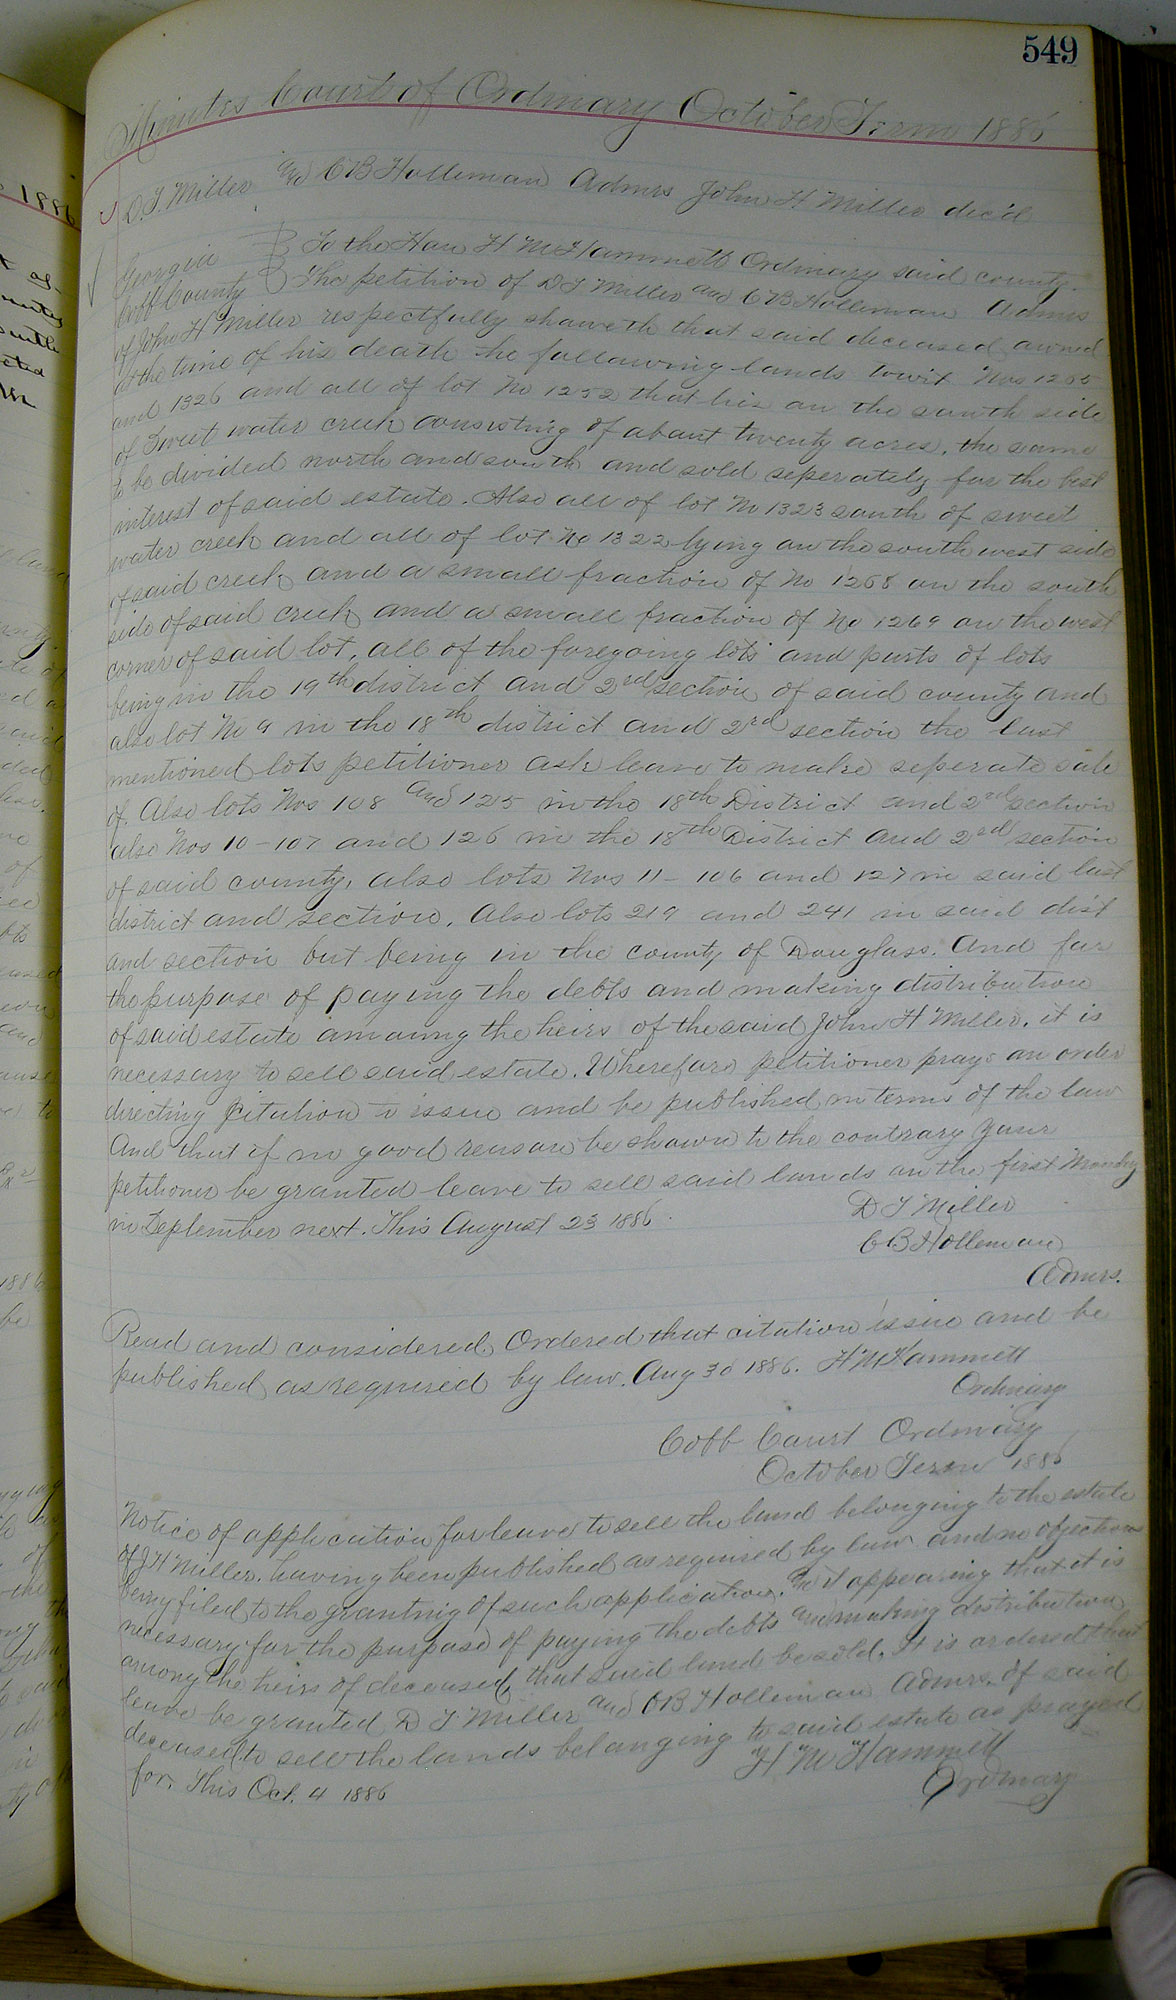 549
Minutes Court of Ordinary October Term 1886
D. T. Miller and C B Holleman Admrs John H Miller dec'd
Georgia } To the Hon H M Hammett Ordinary said county.
Cobb County } The petition of D T Miller and C B Holleman Admrs
of John H Miller respectfully showeth that said deceased owned
at the time of his death the following lands towit Nos 1255
and 1326 and all of lot No 1252 that lies on the south side
of Sweet water creek consisting of about twenty acres, the same
to be divided north and south and sold seperately for the best
interest of said estate. Also all of lot No 1323 south of sweet
water creek and all of lot No 1322 lying on the south west side
of said creek and a small fraction of No 1268 on the south
side of said creek and a small fraction of No 1269 on the west
corner of said lot, all of the foregoing lots and parts of lots
being in the 19th district and 2nd section of said county and
also lot No 9 in the 18th district and 2nd section the last
mentioned lots petitioner ask leave to make seperate sale
of. Also lots Nos 108 and 125 in the 18th District and 2nd section
also Nos 10 - 107 and 126 in the 18th District and 2nd section
of said county, also lots Nos 11 - 106 and 127 in said last
district and section. Also lots 219 and 241 in said dist
and section but being in the county of Douglass. And for
the purpose of paying the debts and making distribution
of said estate amoung the heirs of the said John H Miller, it is
necessary to sell said estate. Wherefore petitioner prays an order
directing citation to issue and be published in terms of the law
And that if no good reason be shown to the contrary your
petitioner be granted leave to sell said lands on the first Monday
in September next. This August 23 1886.
D T Miller
C B Holleman
Admrs.
Read and considered, Ordered that citation issue and be
published as required by law. Aug 30 1886. H M Hammett
Ordinary
Cobb Court Ordinary
October Term 1886
Notice of application for leave to sell the land belonging to the estate
of J H Miller. having been published as required by law and no objection
being filed to the granting of such application. And it appearing that it is
necessary for the purpose of paying the debts and making distribution
among the heirs of deceased, that said land be sold. It is ordered that
leave be granted D T Miller and C B Holleman Admrs. of said
deceased to sell the lands belonging to said estate as prayed
for. This Oct. 4 1886
H M Hammett
Ordinary